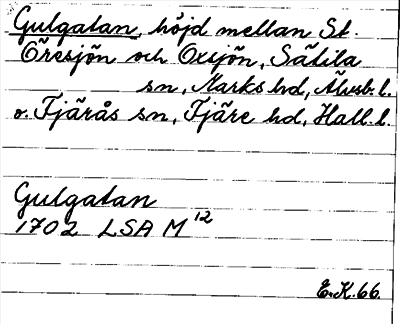 Gulgatan, höjd mellan St.
Öresjön och Oxsjön, Sätila
sn, Marks hd, Älvsb. l.
o. Fjärås sn, Fjäre hd, Hall. l.
Gulgatan
1702 LSA M 12
E.K. 66.